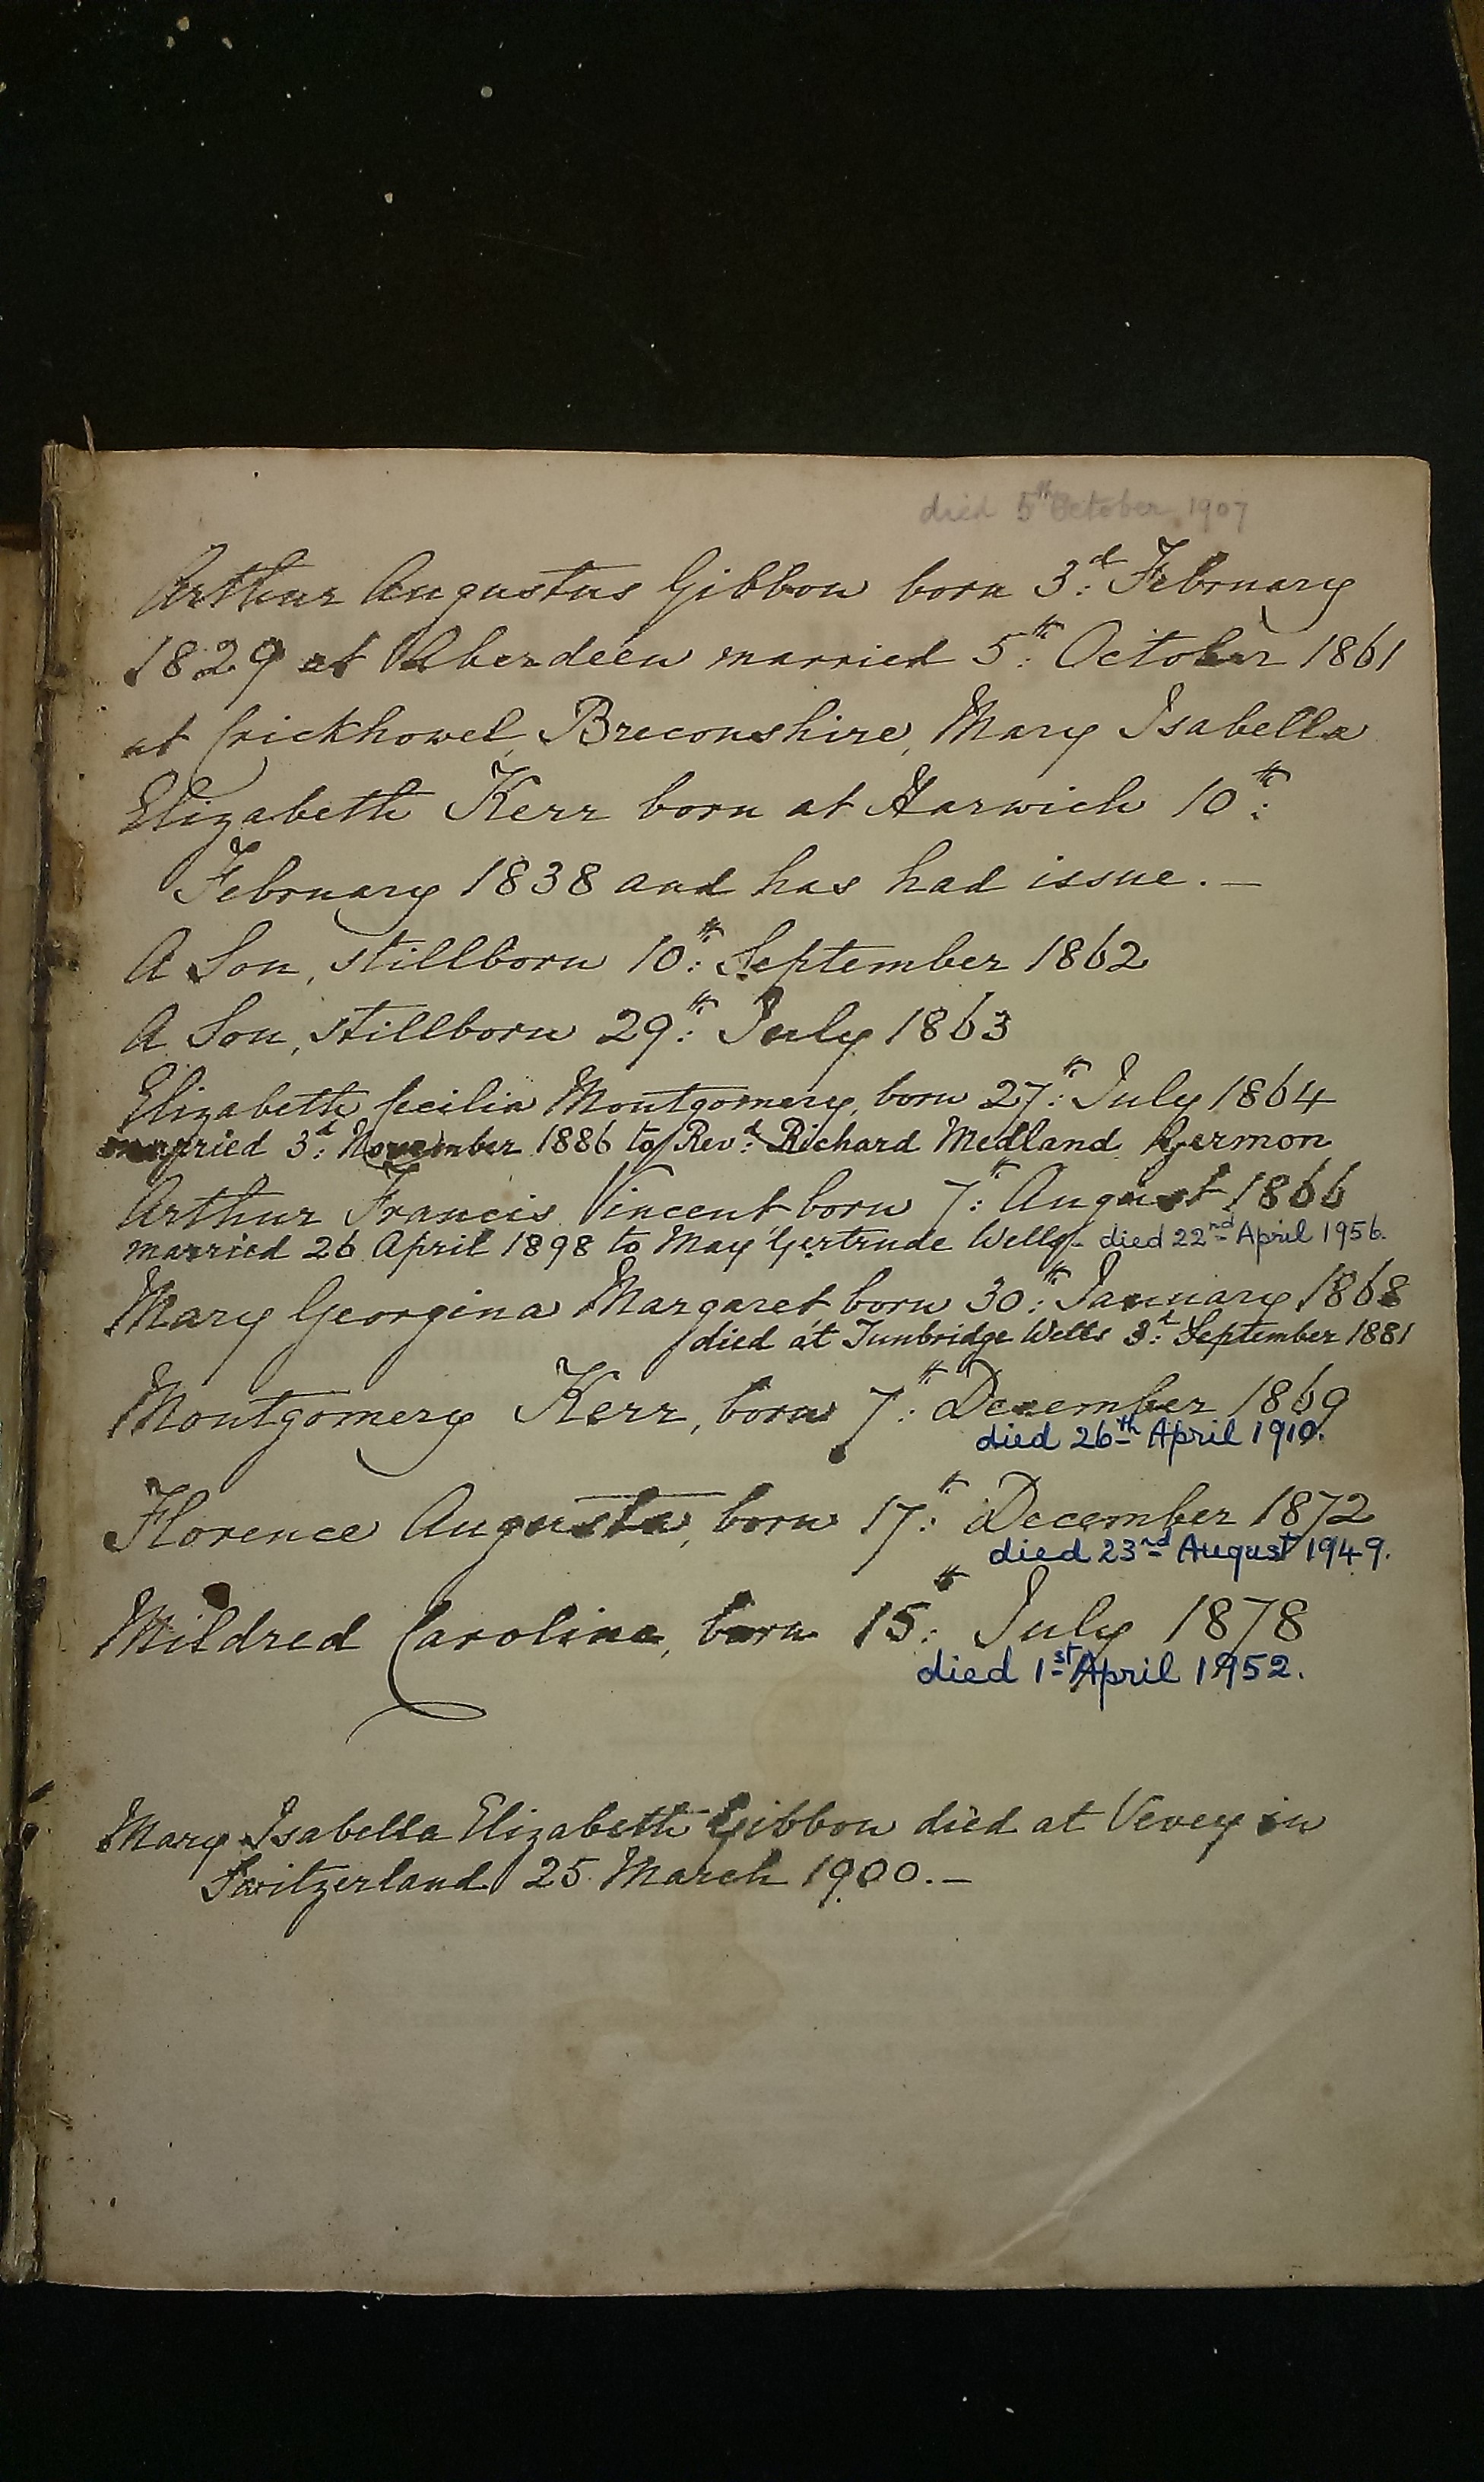 died 5th October 1907
Arthur Augustus Gibbon born 3.d February
1829 at Aberdeen married 5.th October 1861
at Crickhowel, Breconshire, Mary Isabella
Elizabeth Kerr born at Harwich 10.th
February 1838 and has had issue. —
A Son, stillborn 10.th September 1862
A Son, stillborn 29.th July 1863
Elizabeth Cecilia Montgomery, born 27.th July 1864
married 3.d November 1886 to Rev.d Richard Medland Germon
Arthur Francis Vincent born 7.th August 1866
married 26 April 1898 to May Gertrude Wells - died 22nd April 1956.
Mary Georgina Margaret born 30.th January 1868
died at Tunbridge Wells 3.d September 1881
Montgomery Kerr, born 7.th December 1869
died 26th April 1910.
Florence Augusta, born 17.th December 1872
died 23rd August 1949.
Mildred Caroline, born 15.th July 1878
died 1st April 1952.
Mary Isabella Elizabeth Gibbon died at Vevey in
Switzerland 25 March 1900. —